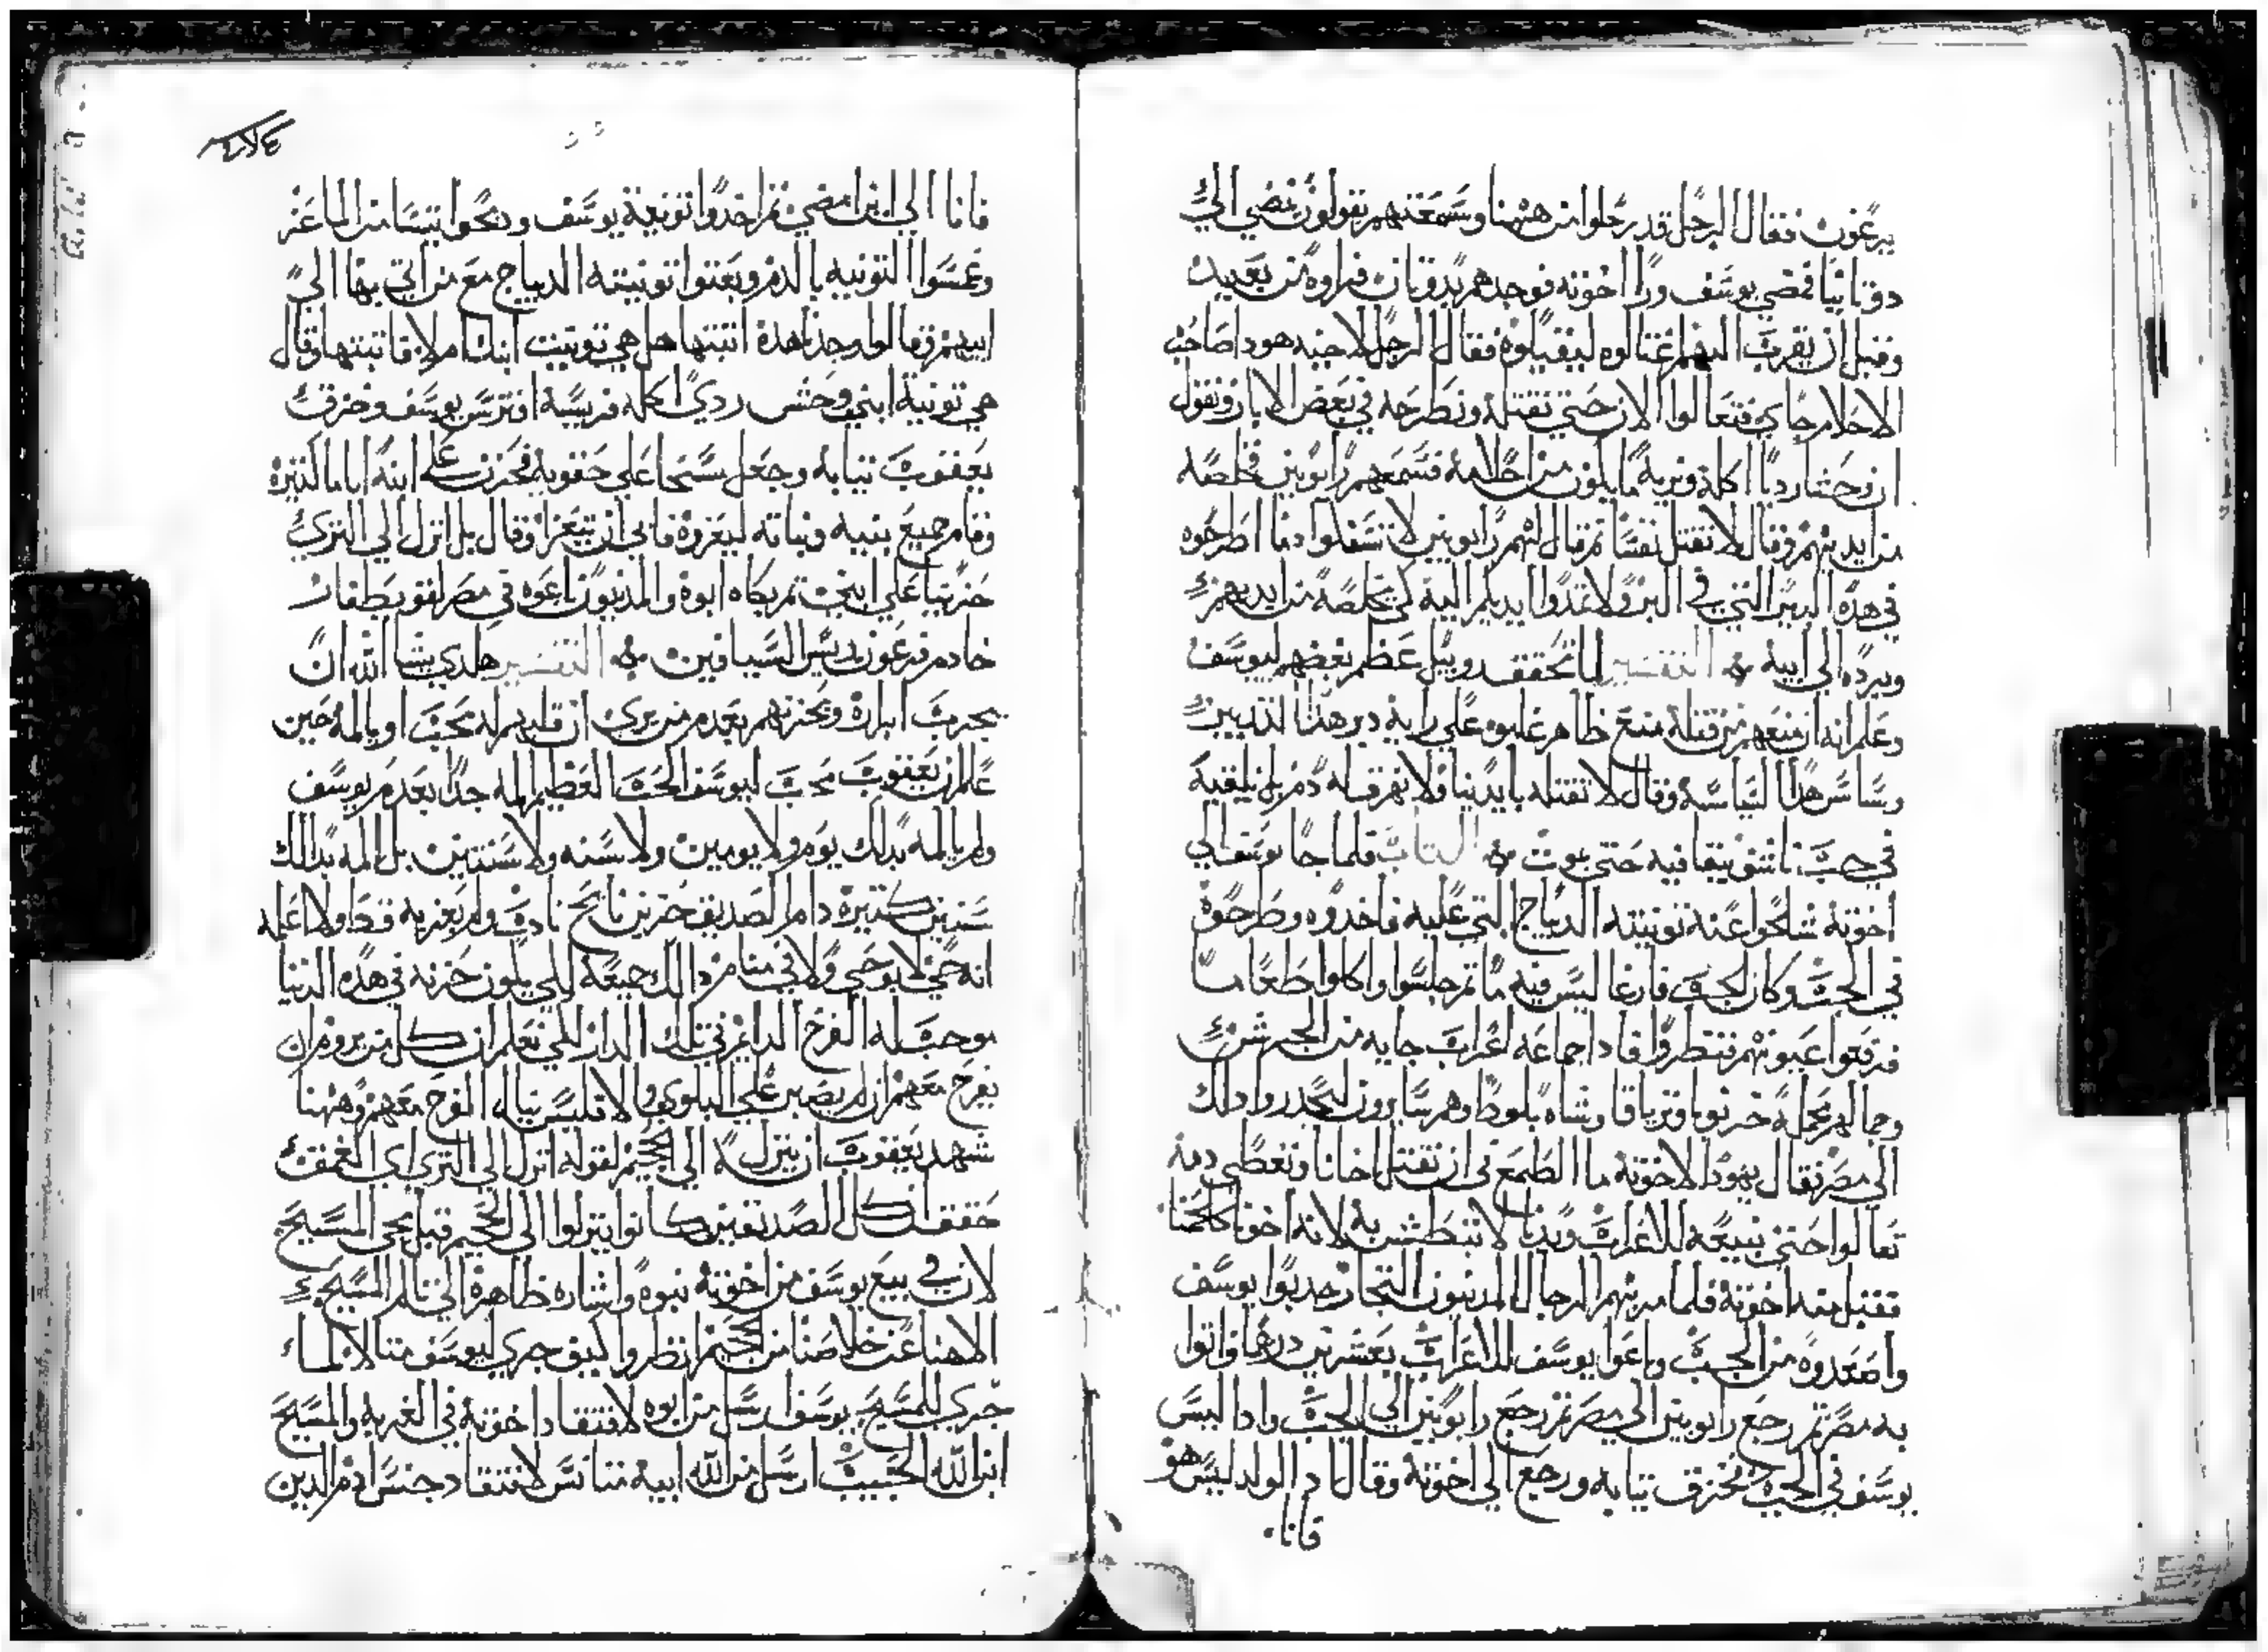 يرعون فقال الرجل قد رحلوا من ههنا وسمعتهم يقولون نمضي الي
دوتانيا فمضي يوسف ورا اخوته فوجدهم بدوتان فراوه من بعيد
وقبل ان يقرب اليهم اغتالوه ليقتلوه فقال الرجل لاخيه هودا صاحب
الاحلام جاي فتعالوا الان حتي نقتله ونطرحه في بعض الابار ونقول
ان وحشا رديا اكله ونريه ما يكون من احلامه فسمعهم رابوين فخلصه
من ايديهم وقال لا نقتل نفسا ثم قال لهم رابوين لا تسفكوا دما اطرحوه
في هذه البير التي في البر ولا تمدوا ايديكم اليه لكي يخلصه من ايديهم
ويرده الي ابيه التفسير لما تحقق روبيل عظم بغضهم ليوسف
وعلم انه ان منعهم من قتله منع ظاهر غلبوه علي رايه دبر هذا التدبير
وساس هذا السياسه وقال لا نقتله بايدينا ولا نهرق له دم بل نلقيه
في جب ناشف يبقا فيه حتي يموت الكتاب فلما جا يوسف الي
اخوته شلحوا عنه تونيته الديباج التي عليه فاخدوه وطرحوه
في الجب وكان الجب فارغا ليس فيه ما ثم جلسوا واكلوا طعاما
فرفعوا عيونهم فنظروا فادا جماعه اعراب جايه من الجرش
وجمالهم محمله خرنوبا وترياقا وشاه بلوط وهم سايرون ليحدروا دلك
الي مصر فقال يهودا لاخوته ما الطمع في ان نقتل اخانا ونغطي دمه
تعالوا حتي نبيعه للاعراب وبدنا لا تبطش به لانه اخونا كلحمنا
فقبل منه اخوته فلما مر بهم الرجال المدينيون التجار جدبوا يوسف
واصعدوه من الجب وباعوا يوسف للاعراب بعشرين درهما واتوا
به مصر ثم رجع رابوين الي مصر ثم رجع رابوين الي الجب وادا ليس
يوسف في الجب فخرق تيابه ورجع الي اخوته وقال ادا الولد ليس هو
فانا
فانا الي اين امضي ثم اخدوا تونية يوسف ودبحوا تيسا من الماعز
وغمسوا التونيه بالدم وبعتوا تونيته الديباج مع من اتي بها الي
ابيهم وقالوا وجدنا هده اتبتها هل هي تونيت ابنك ام لا فاتبتها وقال
هي تونية ابني وحش ردي اكله فريسة افترس يوسف وخرق
يعقوب تيابه وجعل مسحا علي حقويه فحزن علي ابنه اياما كتيرة
وقام جميع بنيه وبناته ليعزوه فابي ان يتعزا وقال بل انزل الي التري
حزينا علي ابني تم بكاه ابوه والمدينيون باعوه في مصر لفوطيفار
خادم فرعون ريس السيافين التفسير هكدي يشا الله ان
يجرب ابراره ويحزنهم بعدم من يري ان قلبهم له محب او يالمه حين
علم ان يعقوب محب ليوسف الحب العظيم المه جدا بعدم يوسف
ولم يالمه بدلك يوم ولا يومين ولا سنه ولا سنتين بل المه بدالك
سنين كتيرة دام الصديق حزين نايح نادب ولم يعزيه قط ولا اعلمه
انه حي لا بوحي ولا في منام دالك جميعه لكي يكون حزنه في هده الدنيا
موجب له الفرح الدايم في تلك الدار لكي نعلم ان كل من يروم ان
يفرح معهم ان لم يصبر علي البلوي والا فليس يناله الفرح معهم وههنا
شهد يعقوب ان ينزل الي الجحيم لقوله انزل الي التري اي العمق
حقق ان كل الصديقين كانوا ينزلوا الي الجحيم قبل مجي المسيح
لان في بيع يوسف من اخوته نبوه واشاره ظاهرة الي تالم المسيح
الاهنا عن خلاصنا من الجحيم انظروا كيف جري ليوسف متالا لما
جري للمسيح يوسف ارسل من ابوه لافتقاد اخوته في الغربه والمسيح
ابن الله الحبيب ارسل من الله ابيه متانس لافتقاد جنس ادم الدين